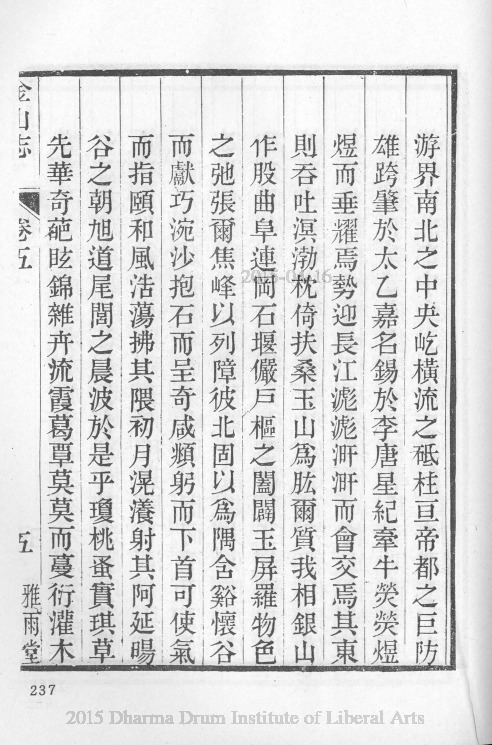 游界南北之中央屹橫流之砥柱亘帝都之巨防
雄跨肇於太乙嘉名錫於李唐星紀牽牛熒熒煜
煜而垂耀焉勢迎長江滮滮汧汧而會交焉其東
則吞吐溟渤枕倚扶桑玉山爲肱爾質我相銀山
作股曲阜連岡石堰儼戶樞之闔闢玉屏羅物色
之弛張爾焦峰以列障彼北固以爲隅含谿懷谷
而獻巧涴沙抱石而呈奇咸頫躬而下首可使氣
而指頤和風浩蕩拂其隈初月滉瀁射其阿延暘
谷之朝旭道尾閭之晨波於是乎瓊桃蚤蕡琪草
先華奇葩眩錦雜卉流霞葛覃莫莫而蔓衍灌木
金山志
卷五
五
雅雨堂
237
2015 Dharma Drum Institute of Liberal Arts